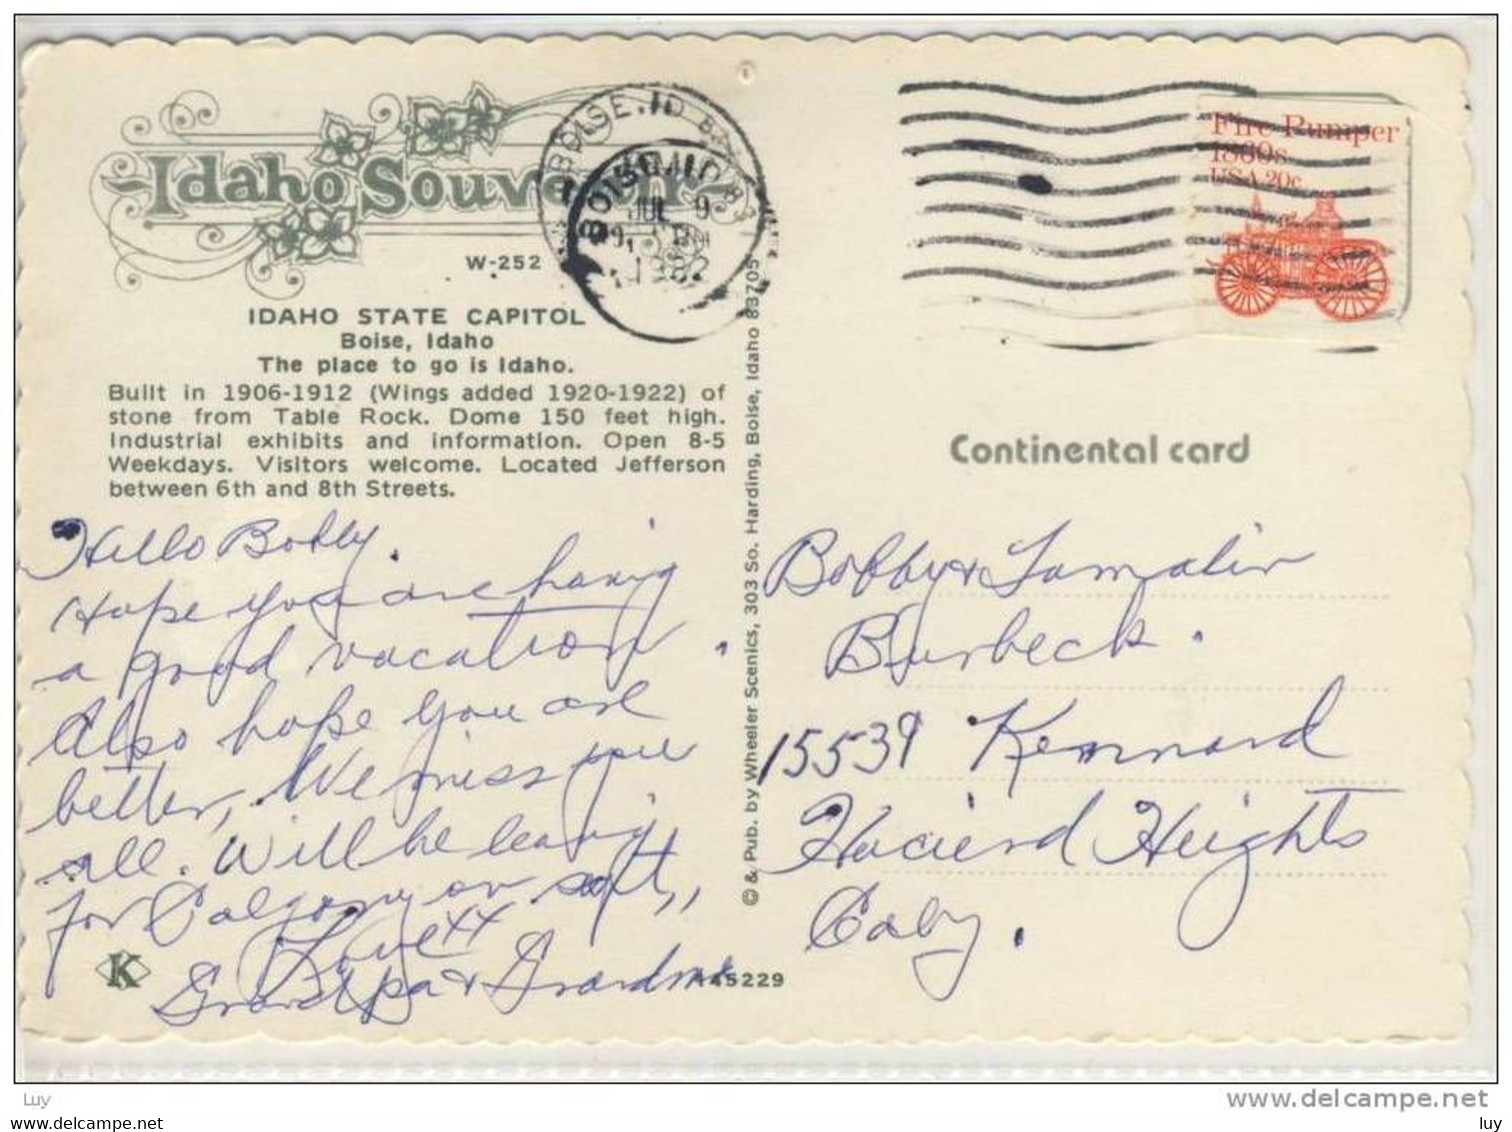 Idaho Souvenir
W-252
IDAHO STATE CAPITOL
Boise, Idaho
The place to go is Idaho.
Built in 1906-1912 (Wings added 1920-1922) of
stone from Table Rock. Dome 150 feet high.
Industrial exhibits and information. Open 8-5
Weekdays. Visitors welcome. Located Jefferson
between 6th and 8th Streets.
Hello Bobby.
Hope you are having
a good vacation.
Also hope you are
better, We miss you
all. Will be leaving
for Calgary on sat,,
Love xx
Grandpa & Grandma
K
A45229
© & Pub. by Wheeler Scenics, 303 So. Harding, Boise, Idaho 83705
BOISE, ID
JUL 9
1982
Fire Pumper
1860s
USA 20c
Continental card
Bobby &
Burbeck.
15539 Kennard
Hacienda Heights
Luy
www.delcampe.net
luy